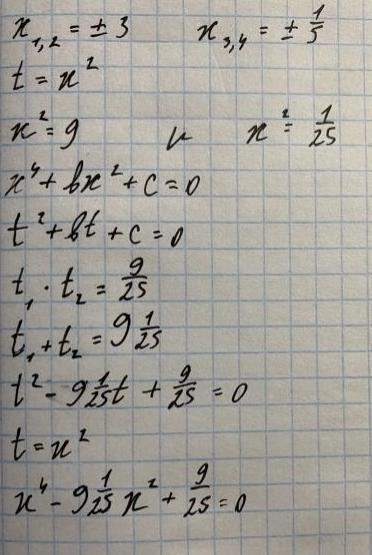 x₁,₂ = ± 3 x₃,₄ = ± 1/5
t = x²
x² = 9 и x² = 1/25
x⁴ + bx² + c = 0
t² + bt + c = 0
t₁ · t₂ = 9/25
t₁ + t₂ = 9 1/25
t² - 9 1/25 t + 9/25 = 0
t = x²
x⁴ - 9 1/25 x² + 9/25 = 0